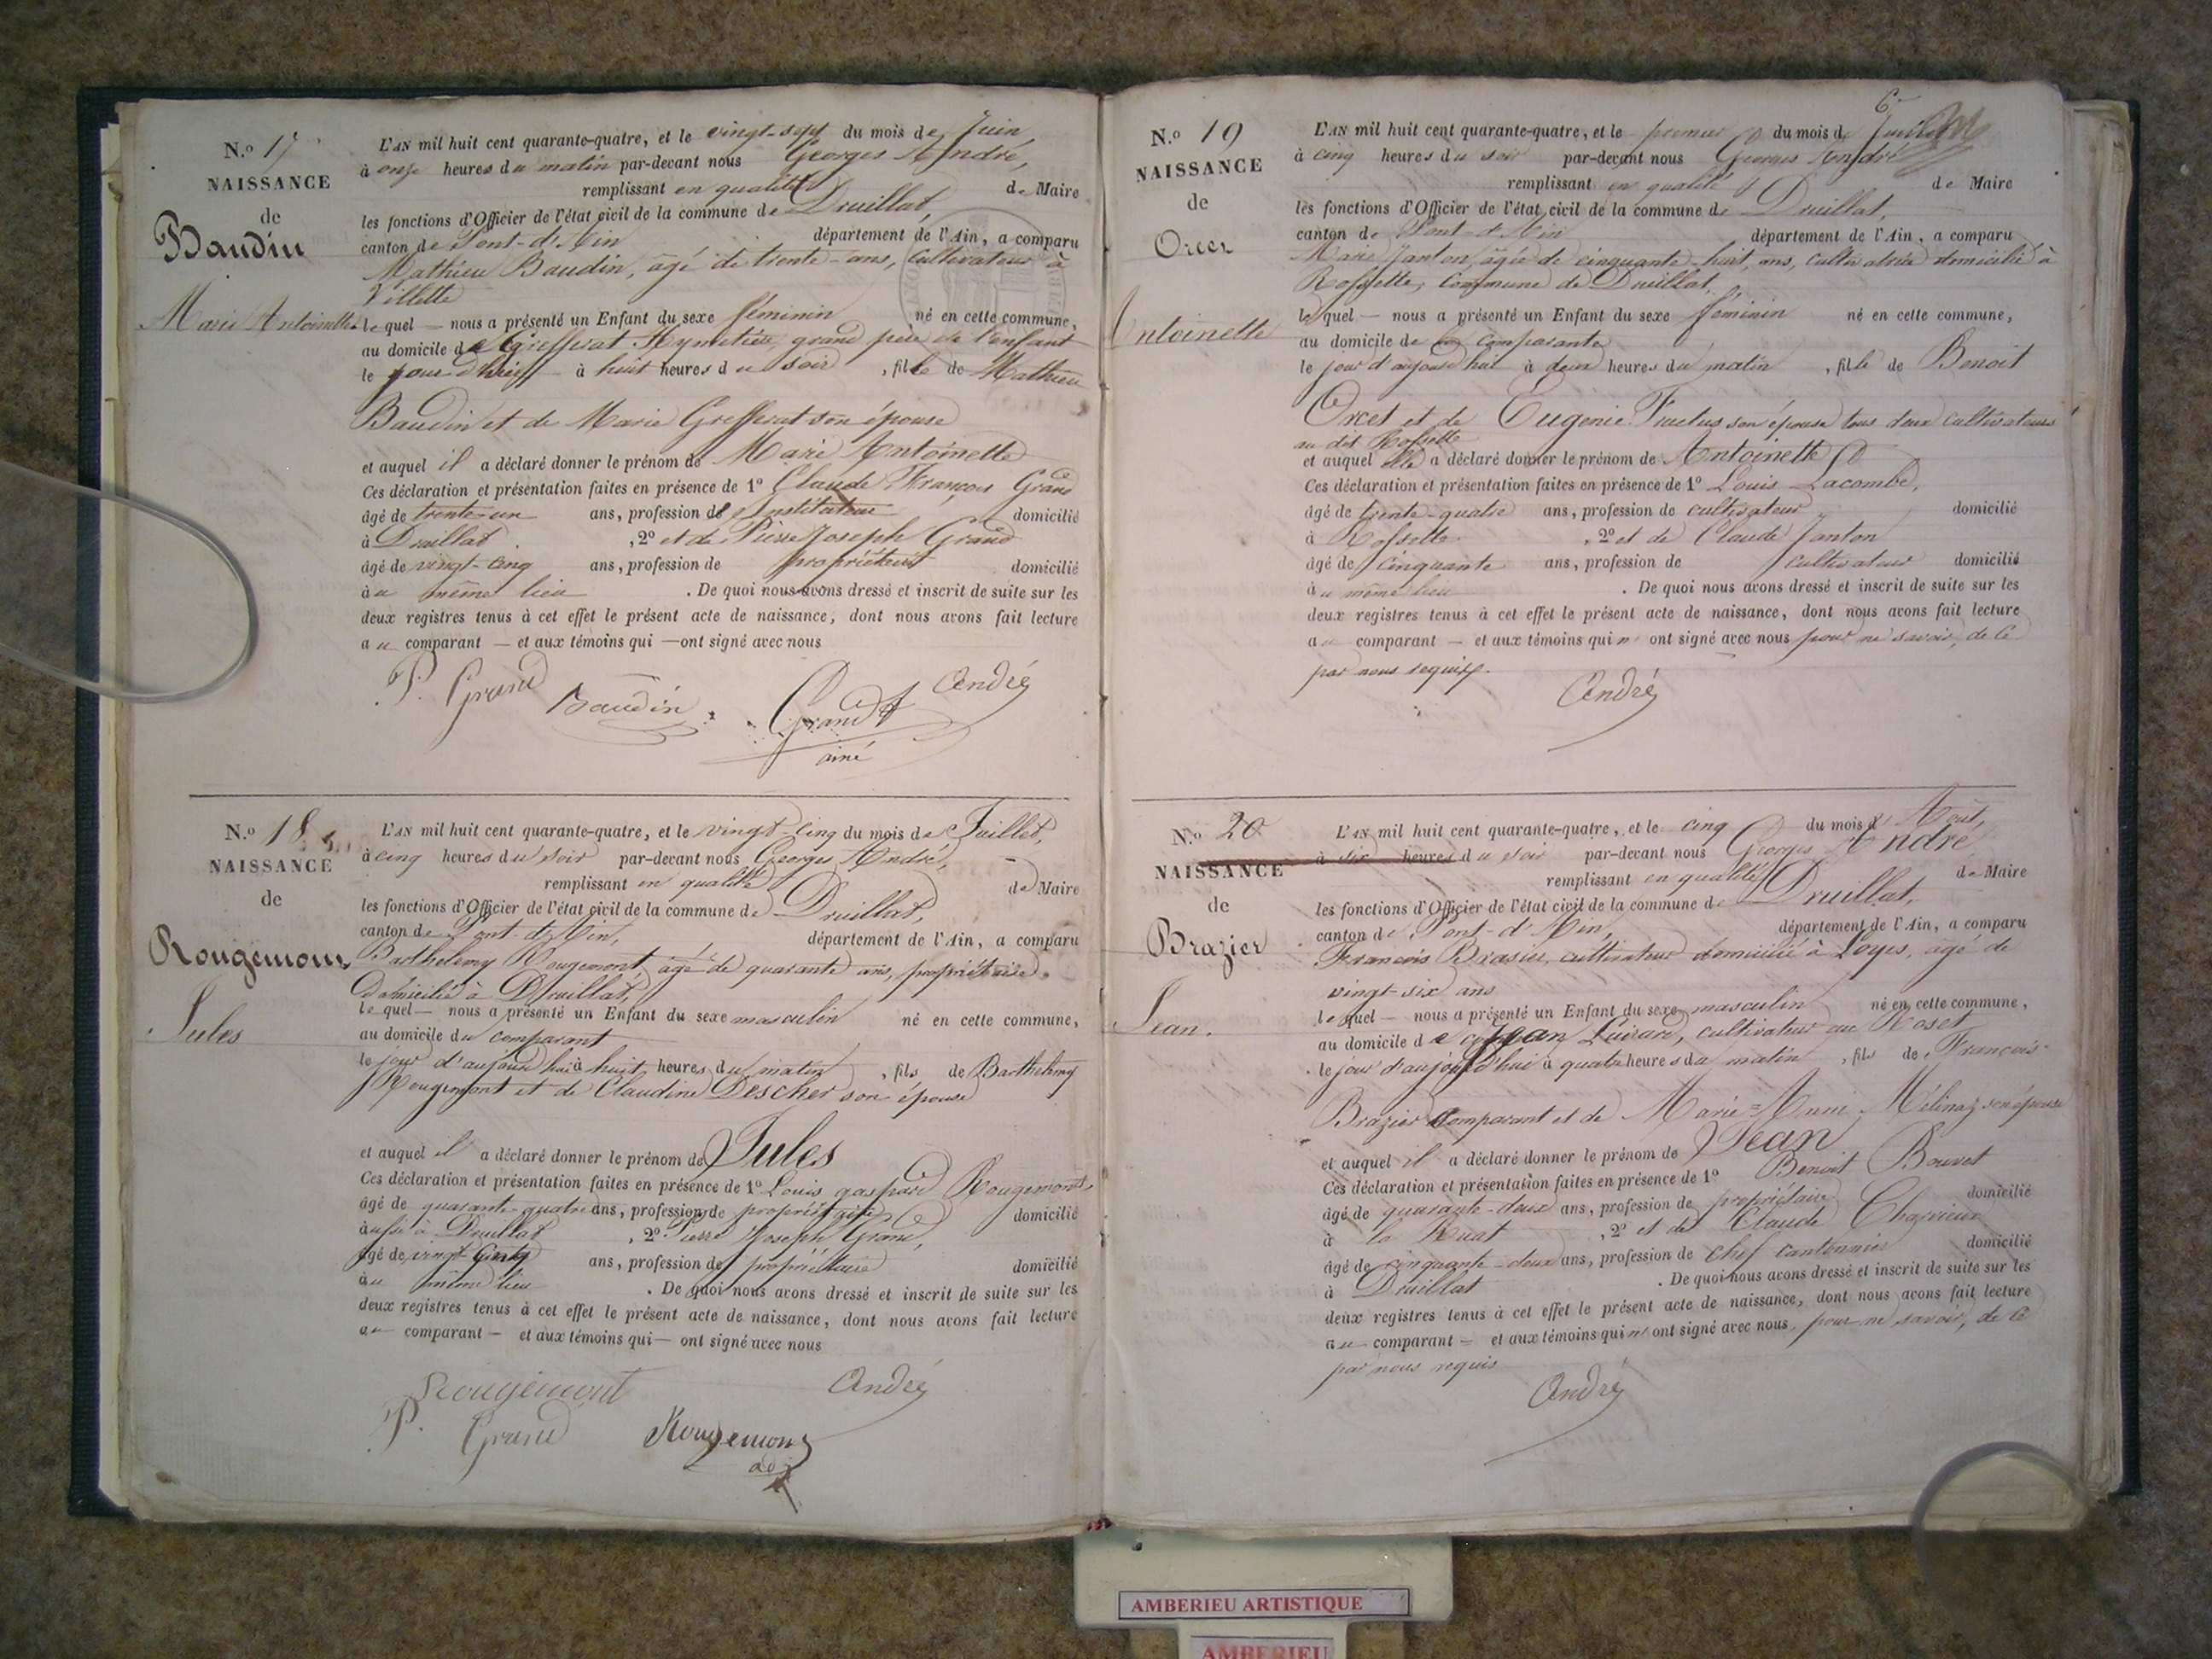 N.o 17
NAISSANCE
de
Baudin
Marie Antoinette
L'AN mil huit cent quarante-quatre, et le vingt-sept du mois de Juin,
à onze heures du matin par-devant nous Georges André,
remplissant en qualité de Maire
les fonctions d'Officier de l'état civil de la commune de Druillat,
canton de Pont-d'Ain département de l'Ain, a comparu
Mathieu Baudin, âgé de trente-ans, Cultivateur à
Villette
lequel — nous a présenté un Enfant du sexe féminin né en cette commune,
au domicile de Grefferat grand père de l'enfant
le jour d'hier à huit heures du soir, fille de Mathieu
Baudin et de Marie Grefferat son épouse
et auquel il a déclaré donner le prénom de Marie Antoinette
Ces déclaration et présentation faites en présence de 1o Claude François Grand
âgé de trente-un ans, profession de Instituteur domicilié
à Druillat, 2o et de Pierre Joseph Grand
âgé de vingt-cinq ans, profession de propriétaire domicilié
au même lieu. De quoi nous avons dressé et inscrit de suite sur les
deux registres tenus à cet effet le présent acte de naissance, dont nous avons fait lecture
au comparant — et aux témoins qui — ont signé avec nous
P. Grand Baudin Grand André
ainé
N.o 18
NAISSANCE
de
Rougemont
Jules
L'AN mil huit cent quarante-quatre, et le vingt-cinq du mois de Juillet,
à cinq heures du soir par-devant nous Georges André,
remplissant en qualité de Maire
les fonctions d'Officier de l'état civil de la commune de Druillat,
canton de Pont-d'Ain, département de l'Ain, a comparu
Barthelemy Rougemont, âgé de quarante ans, propriétaire
domicilié à Druillat,
lequel — nous a présenté un Enfant du sexe masculin né en cette commune,
au domicile du comparant
le jour d'aujourd'hui à huit heures du matin, fils de Barthelemy
Rougemont et de Claudine Descher son épouse
et auquel il a déclaré donner le prénom de Jules
Ces déclaration et présentation faites en présence de 1o Louis gaspard Rougemont,
âgé de quarante-quatre ans, profession de propriétaire domicilié
aussi à Druillat, 2o Pierre Joseph Grand,
âgé de vingt-cinq ans, profession de propriétaire domicilié
au même lieu. De quoi nous avons dressé et inscrit de suite sur les
deux registres tenus à cet effet le présent acte de naissance, dont nous avons fait lecture
au comparant — et aux témoins qui — ont signé avec nous
Rougemont André
P. Grand Rougemont
adj
6
N.o 19
NAISSANCE
de
Orcet
Antoinette
L'AN mil huit cent quarante-quatre, et le premier du mois de Juillet
à cinq heures du soir par-devant nous Georges André
remplissant en qualité de Maire
les fonctions d'Officier de l'état civil de la commune de Druillat,
canton de Pont-d'Ain département de l'Ain, a comparu
Marie Janton âgée de cinquante-huit ans, cultivatrice domicilié à
Rossette, commune de Druillat,
lequel — nous a présenté un Enfant du sexe féminin né en cette commune,
au domicile de comparante
le jour d'aujourd'hui à deux heures du matin, fille de Benoit
Orcet et de Eugenie Fructus son épouse tous deux cultivateurs
au dit Rossette
et auquel elle a déclaré donner le prénom de Antoinette
Ces déclaration et présentation faites en présence de 1o Louis Lacombe,
âgé de trente-quatre ans, profession de cultivateur domicilié
à Rossette, 2o et de Claude Janton
âgé de cinquante ans, profession de cultivateur domicilié
au même lieu. De quoi nous avons dressé et inscrit de suite sur les
deux registres tenus à cet effet le présent acte de naissance, dont nous avons fait lecture
au comparant — et aux témoins qui n' ont signé avec nous pour ne savoir, de ce
par nous requis.
André
N.o 20
NAISSANCE
de
Brazier
Jean.
L'AN mil huit cent quarante-quatre, et le cinq du mois d'Août,
à six heures du soir par-devant nous Georges André
remplissant en qualité de Maire
les fonctions d'Officier de l'état civil de la commune de Druillat,
canton de Pont-d'Ain, département de l'Ain, a comparu
François Brasier, cultivateur domicilié à Loyes, âgé de
vingt-six ans
lequel — nous a présenté un Enfant du sexe masculin né en cette commune,
au domicile de Jean cultivateur au Roset
le jour d'aujourd'hui à quatre heures du matin, fils de François
Brazier comparant et de Marie-Anne Mélinaz son épouse
et auquel il a déclaré donner le prénom de Jean
Ces déclaration et présentation faites en présence de 1o Benoit Bouvet
âgé de quarante-deux ans, profession de propriétaire domicilié
à la Ruat, 2o et de Claude Charvieux
âgé de cinquante-deux ans, profession de chef cantonnier domicilié
à Druillat. De quoi nous avons dressé et inscrit de suite sur les
deux registres tenus à cet effet le présent acte de naissance, dont nous avons fait lecture
au comparant — et aux témoins qui n' ont signé avec nous, pour ne savoir, de ce
par nous requis
André
AMBERIEU ARTISTIQUE
AMBERIEU